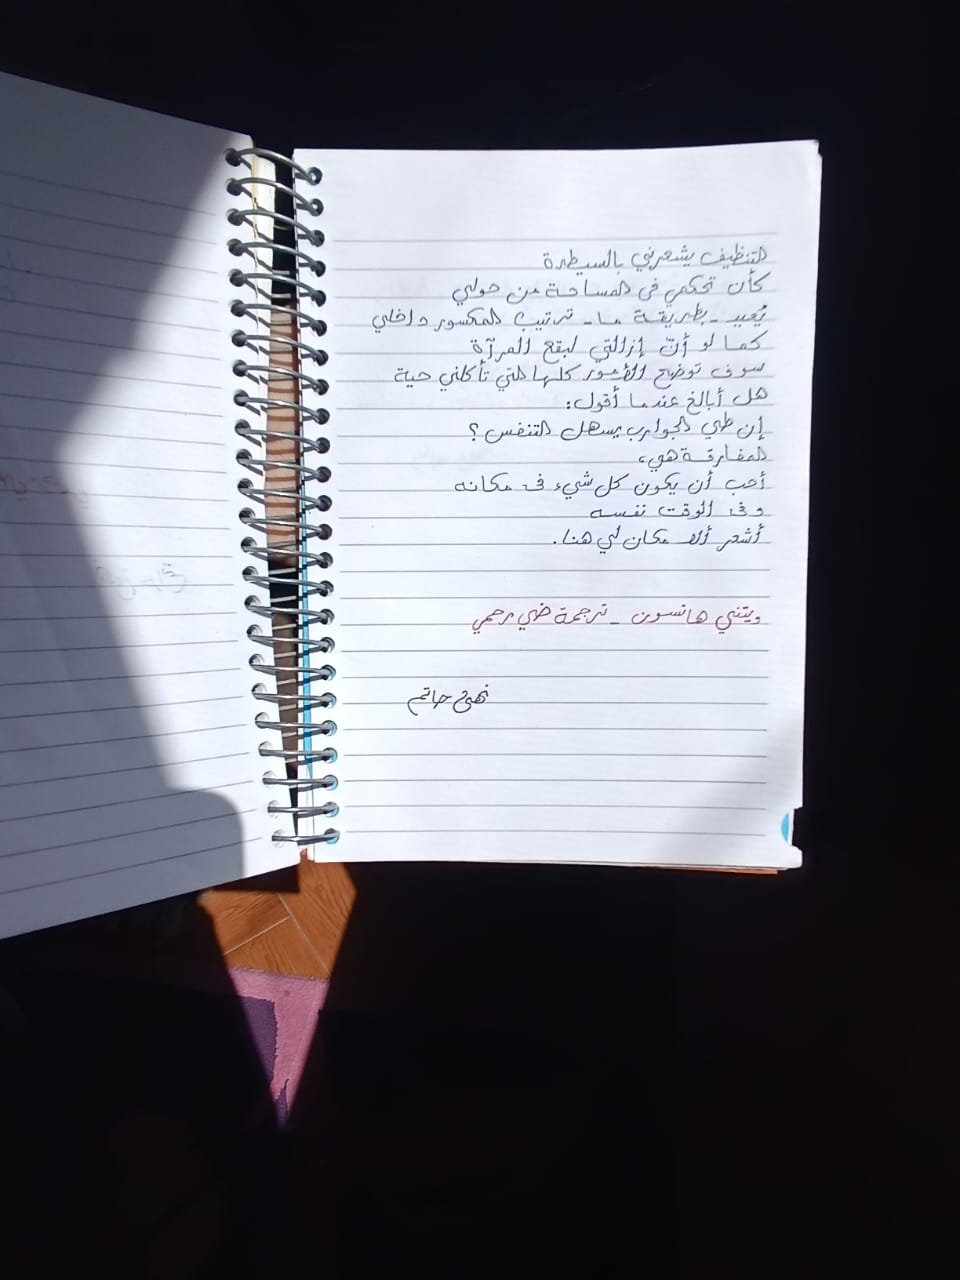 التنظيف يشعرني بالسيطرة
كأن تحكمي في المساحة من حولي
يُعيد - بطريقة ما - ترتيب المكسور داخلي
كما لو أنّ إزالتي لبقع المرآة
سوف توضح الأمور كلها التي تأكلني حية
هل أبالغ عندما أقول:
إن طي الجوارب يسهل التنفس؟
المفارقة هي،
أحب أن يكون كل شيء في مكانه
وفي الوقت نفسه
أشعر ألا مكان لي هنا.
ويتني هانسون - ترجمة ضي رحمي
نهى حاتم